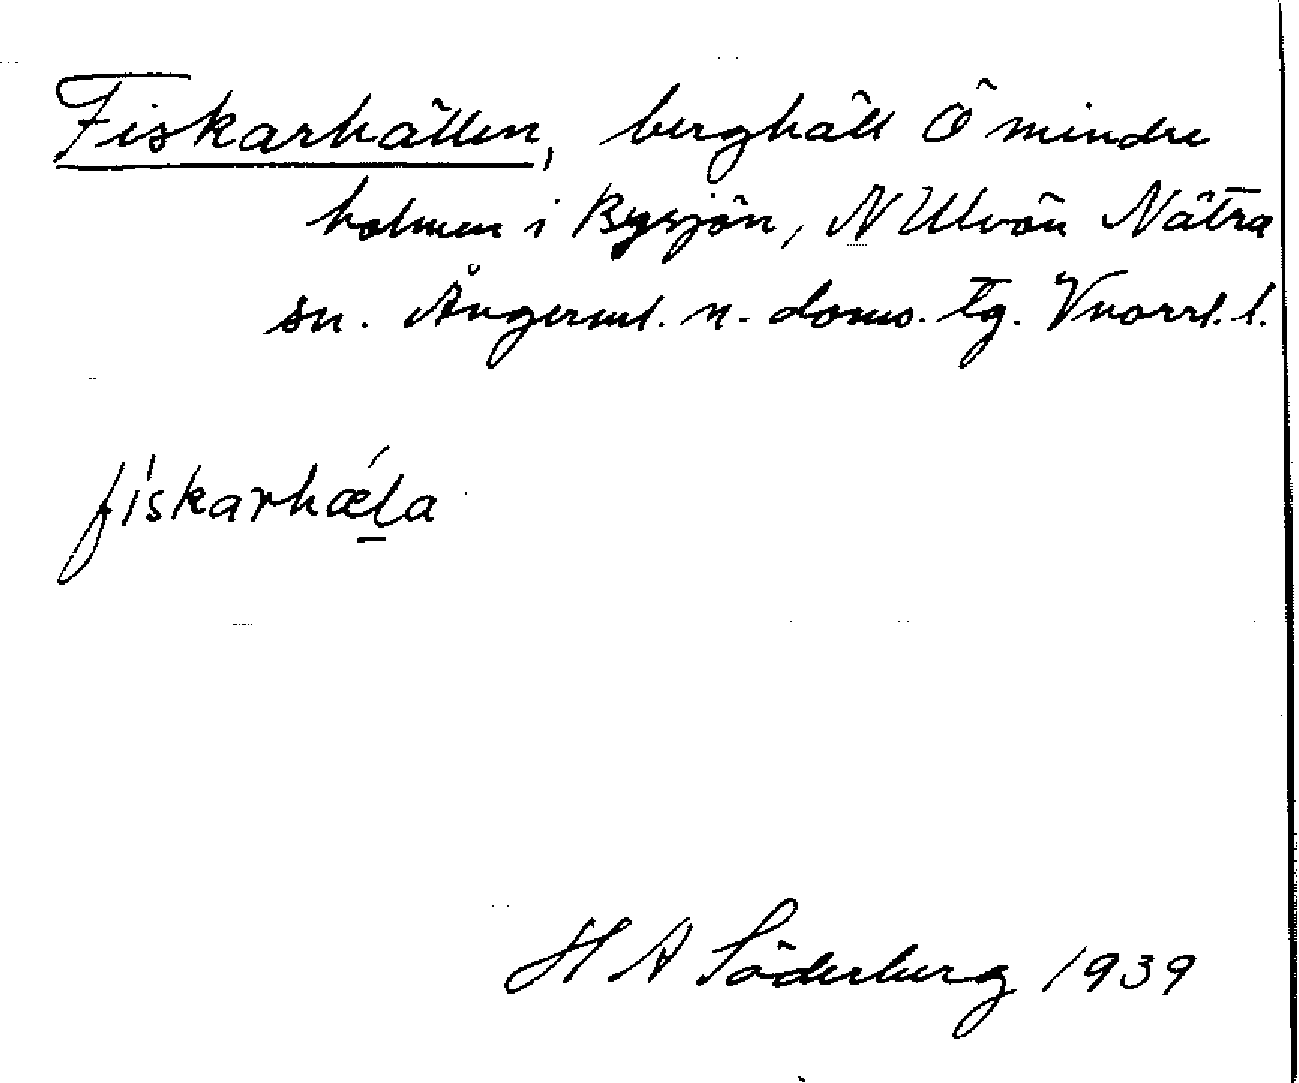 Fiskarhällen, berghäll Ö mindre
holmen i Bysjön, N Ulvön Nätra
sn. Ångerml. n. doms. tg. Vnorrl. l.
fiskarhǽla
H A Söderberg 1939